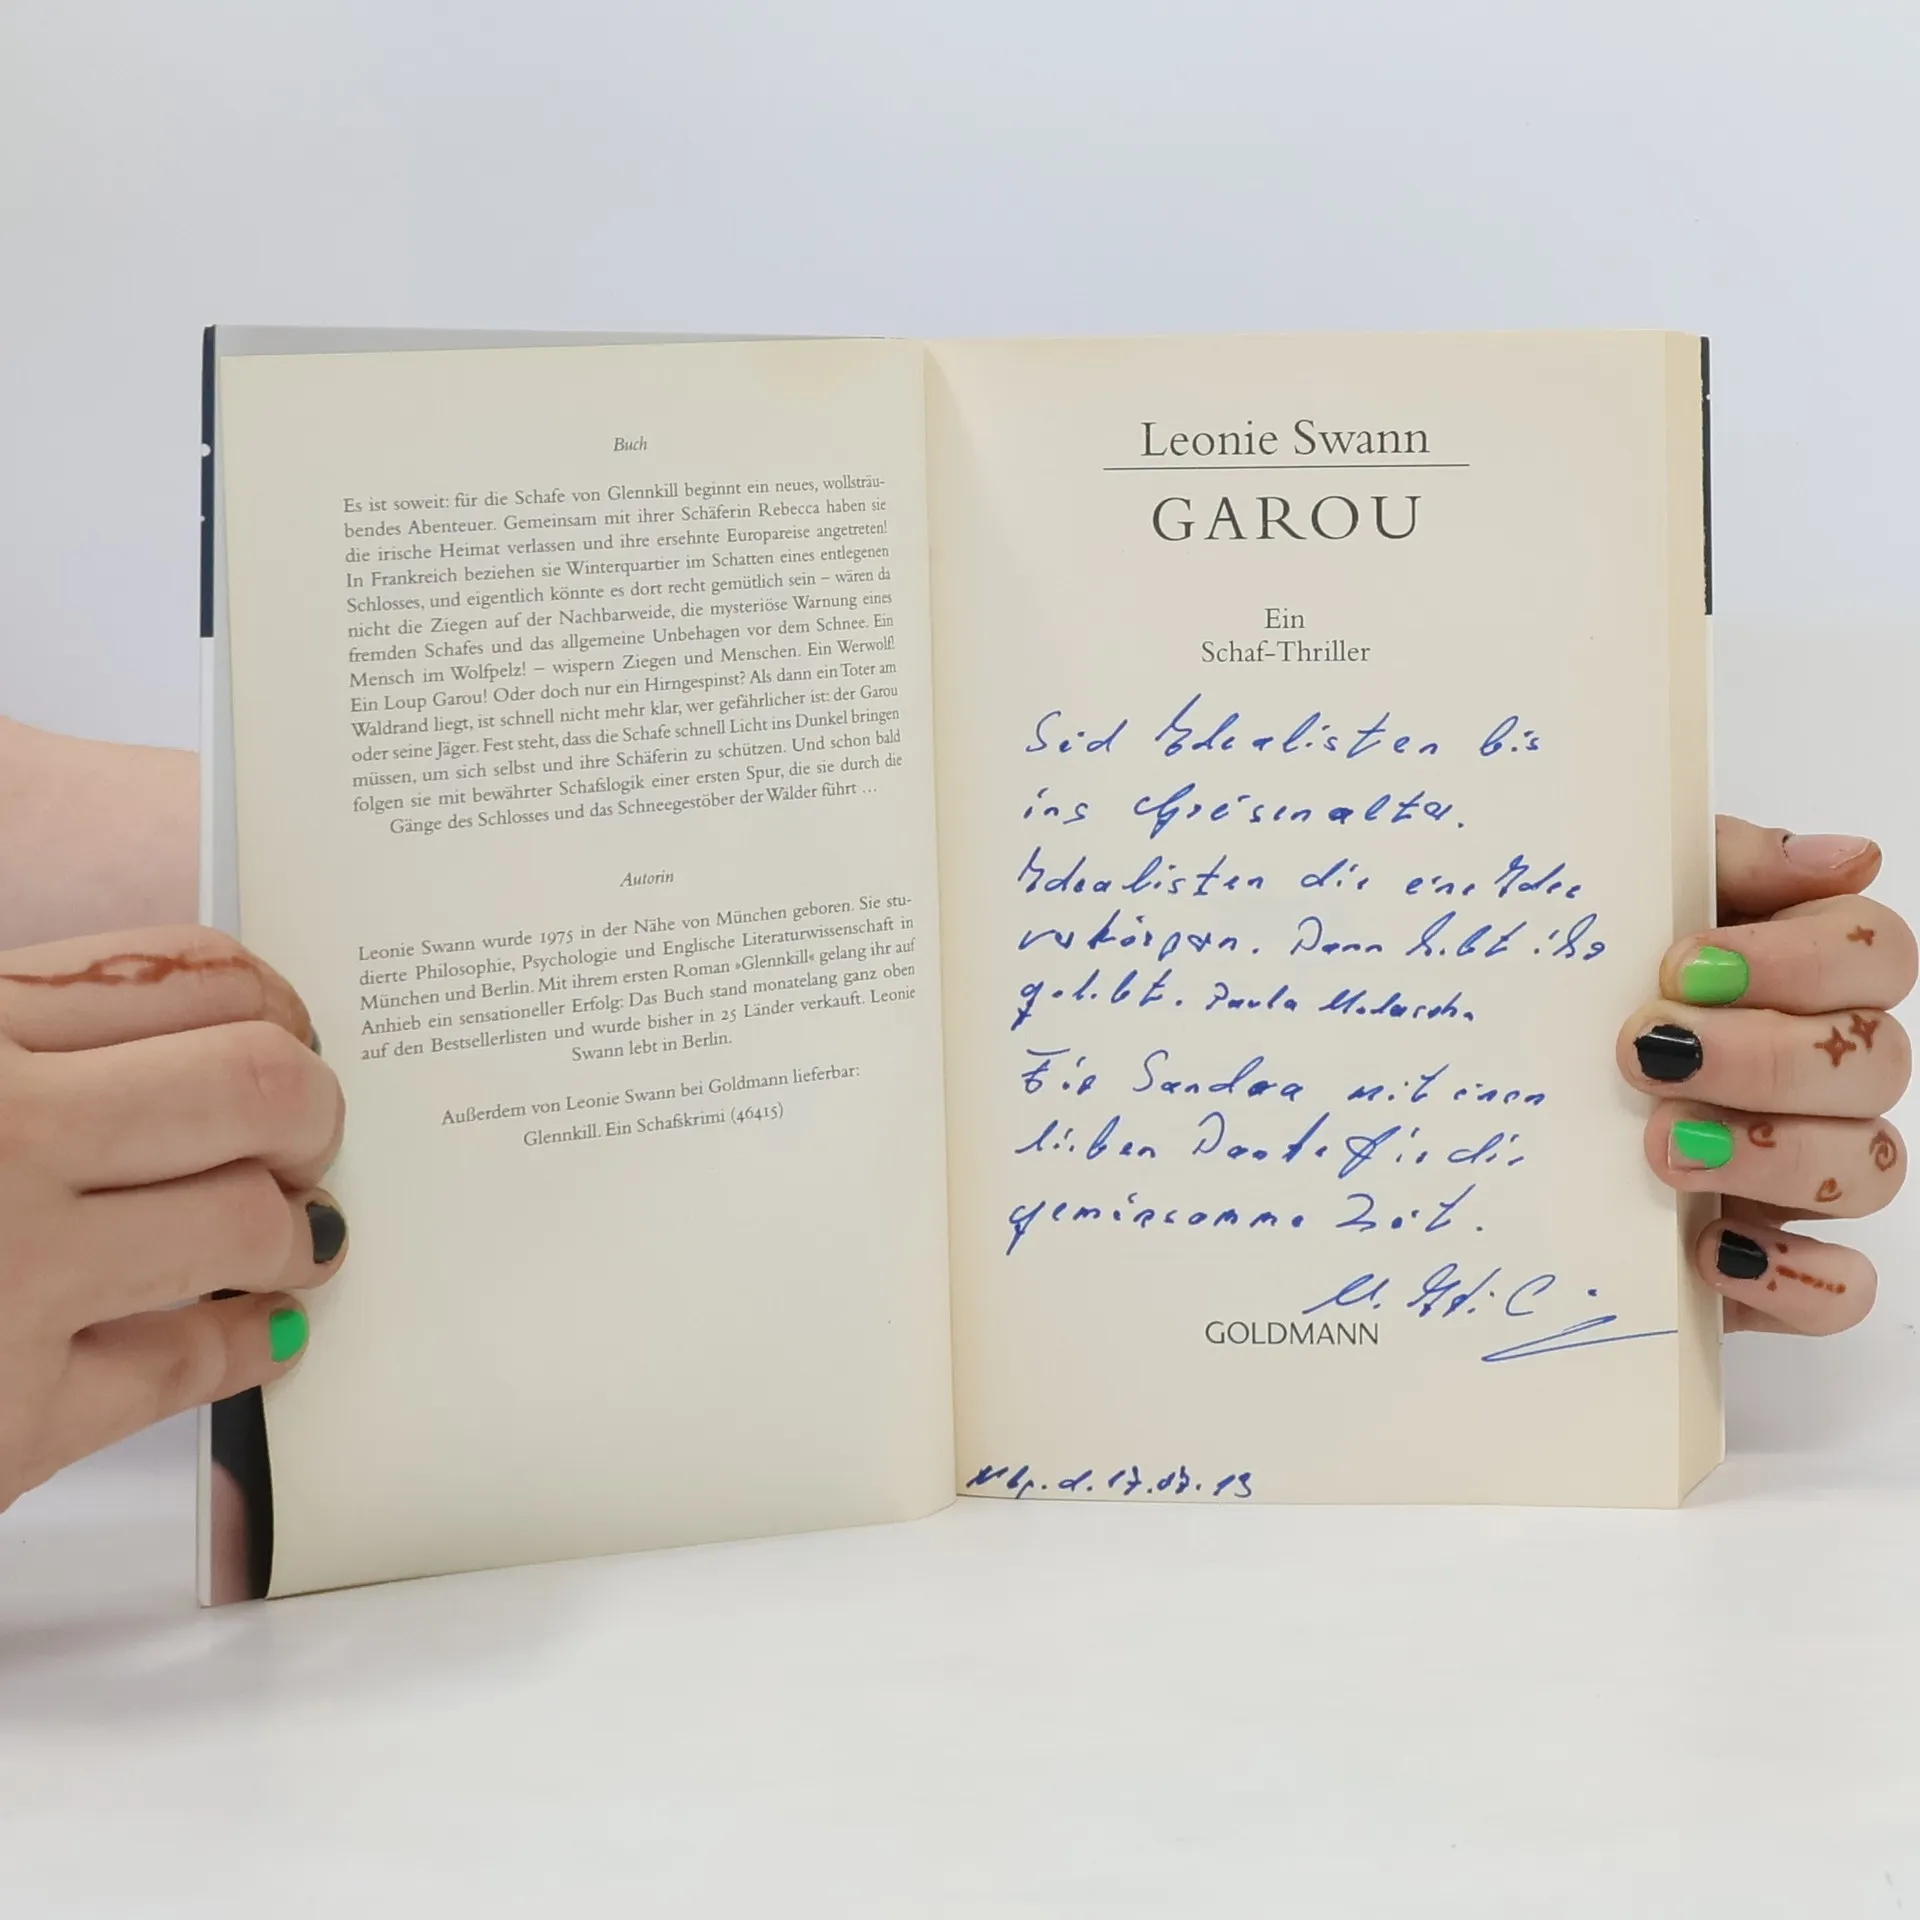 Buch
Es ist soweit: für die Schafe von Glennkill beginnt ein neues, wollsträu-
bendes Abenteuer. Gemeinsam mit ihrer Schäferin Rebecca haben sie
die irische Heimat verlassen und ihre ersehnte Europareise angetreten!
In Frankreich beziehen sie Winterquartier im Schatten eines entlegenen
Schlosses, und eigentlich könnte es dort recht gemütlich sein – wären da
nicht die Ziegen auf der Nachbarweide, die mysteriöse Warnung eines
fremden Schafes und das allgemeine Unbehagen vor dem Schnee. Ein
Mensch im Wolfpelz! – wispern Ziegen und Menschen. Ein Werwolf!
Ein Loup Garou! Oder doch nur ein Hirngespinst? Als dann ein Toter am
Waldrand liegt, ist schnell nicht mehr klar, wer gefährlicher ist: der Garou
oder seine Jäger. Fest steht, dass die Schafe schnell Licht ins Dunkel bringen
müssen, um sich selbst und ihre Schäferin zu schützen. Und schon bald
folgen sie mit bewährter Schafslogik einer ersten Spur, die sie durch die
Gänge des Schlosses und das Schneegestöber der Wälder führt ...
Autorin
Leonie Swann wurde 1975 in der Nähe von München geboren. Sie stu-
dierte Philosophie, Psychologie und Englische Literaturwissenschaft in
München und Berlin. Mit ihrem ersten Roman »Glennkill« gelang ihr auf
Anhieb ein sensationeller Erfolg: Das Buch stand monatelang ganz oben
auf den Bestsellerlisten und wurde bisher in 25 Länder verkauft. Leonie
Swann lebt in Berlin.
Außerdem von Leonie Swann bei Goldmann lieferbar:
Glennkill. Ein Schafskrimi (46415)
Leonie Swann
GAROU
Ein
Schaf-Thriller
Seid Idealisten bis
ins Greisenalter.
Idealisten die eine Idee
verkörpern. Dann habt ihr
gelebt. Paula
Für Sandra mit einem
lieben Danke für die
gemeinsame Zeit.
GOLDMANN
d. 17.07.13